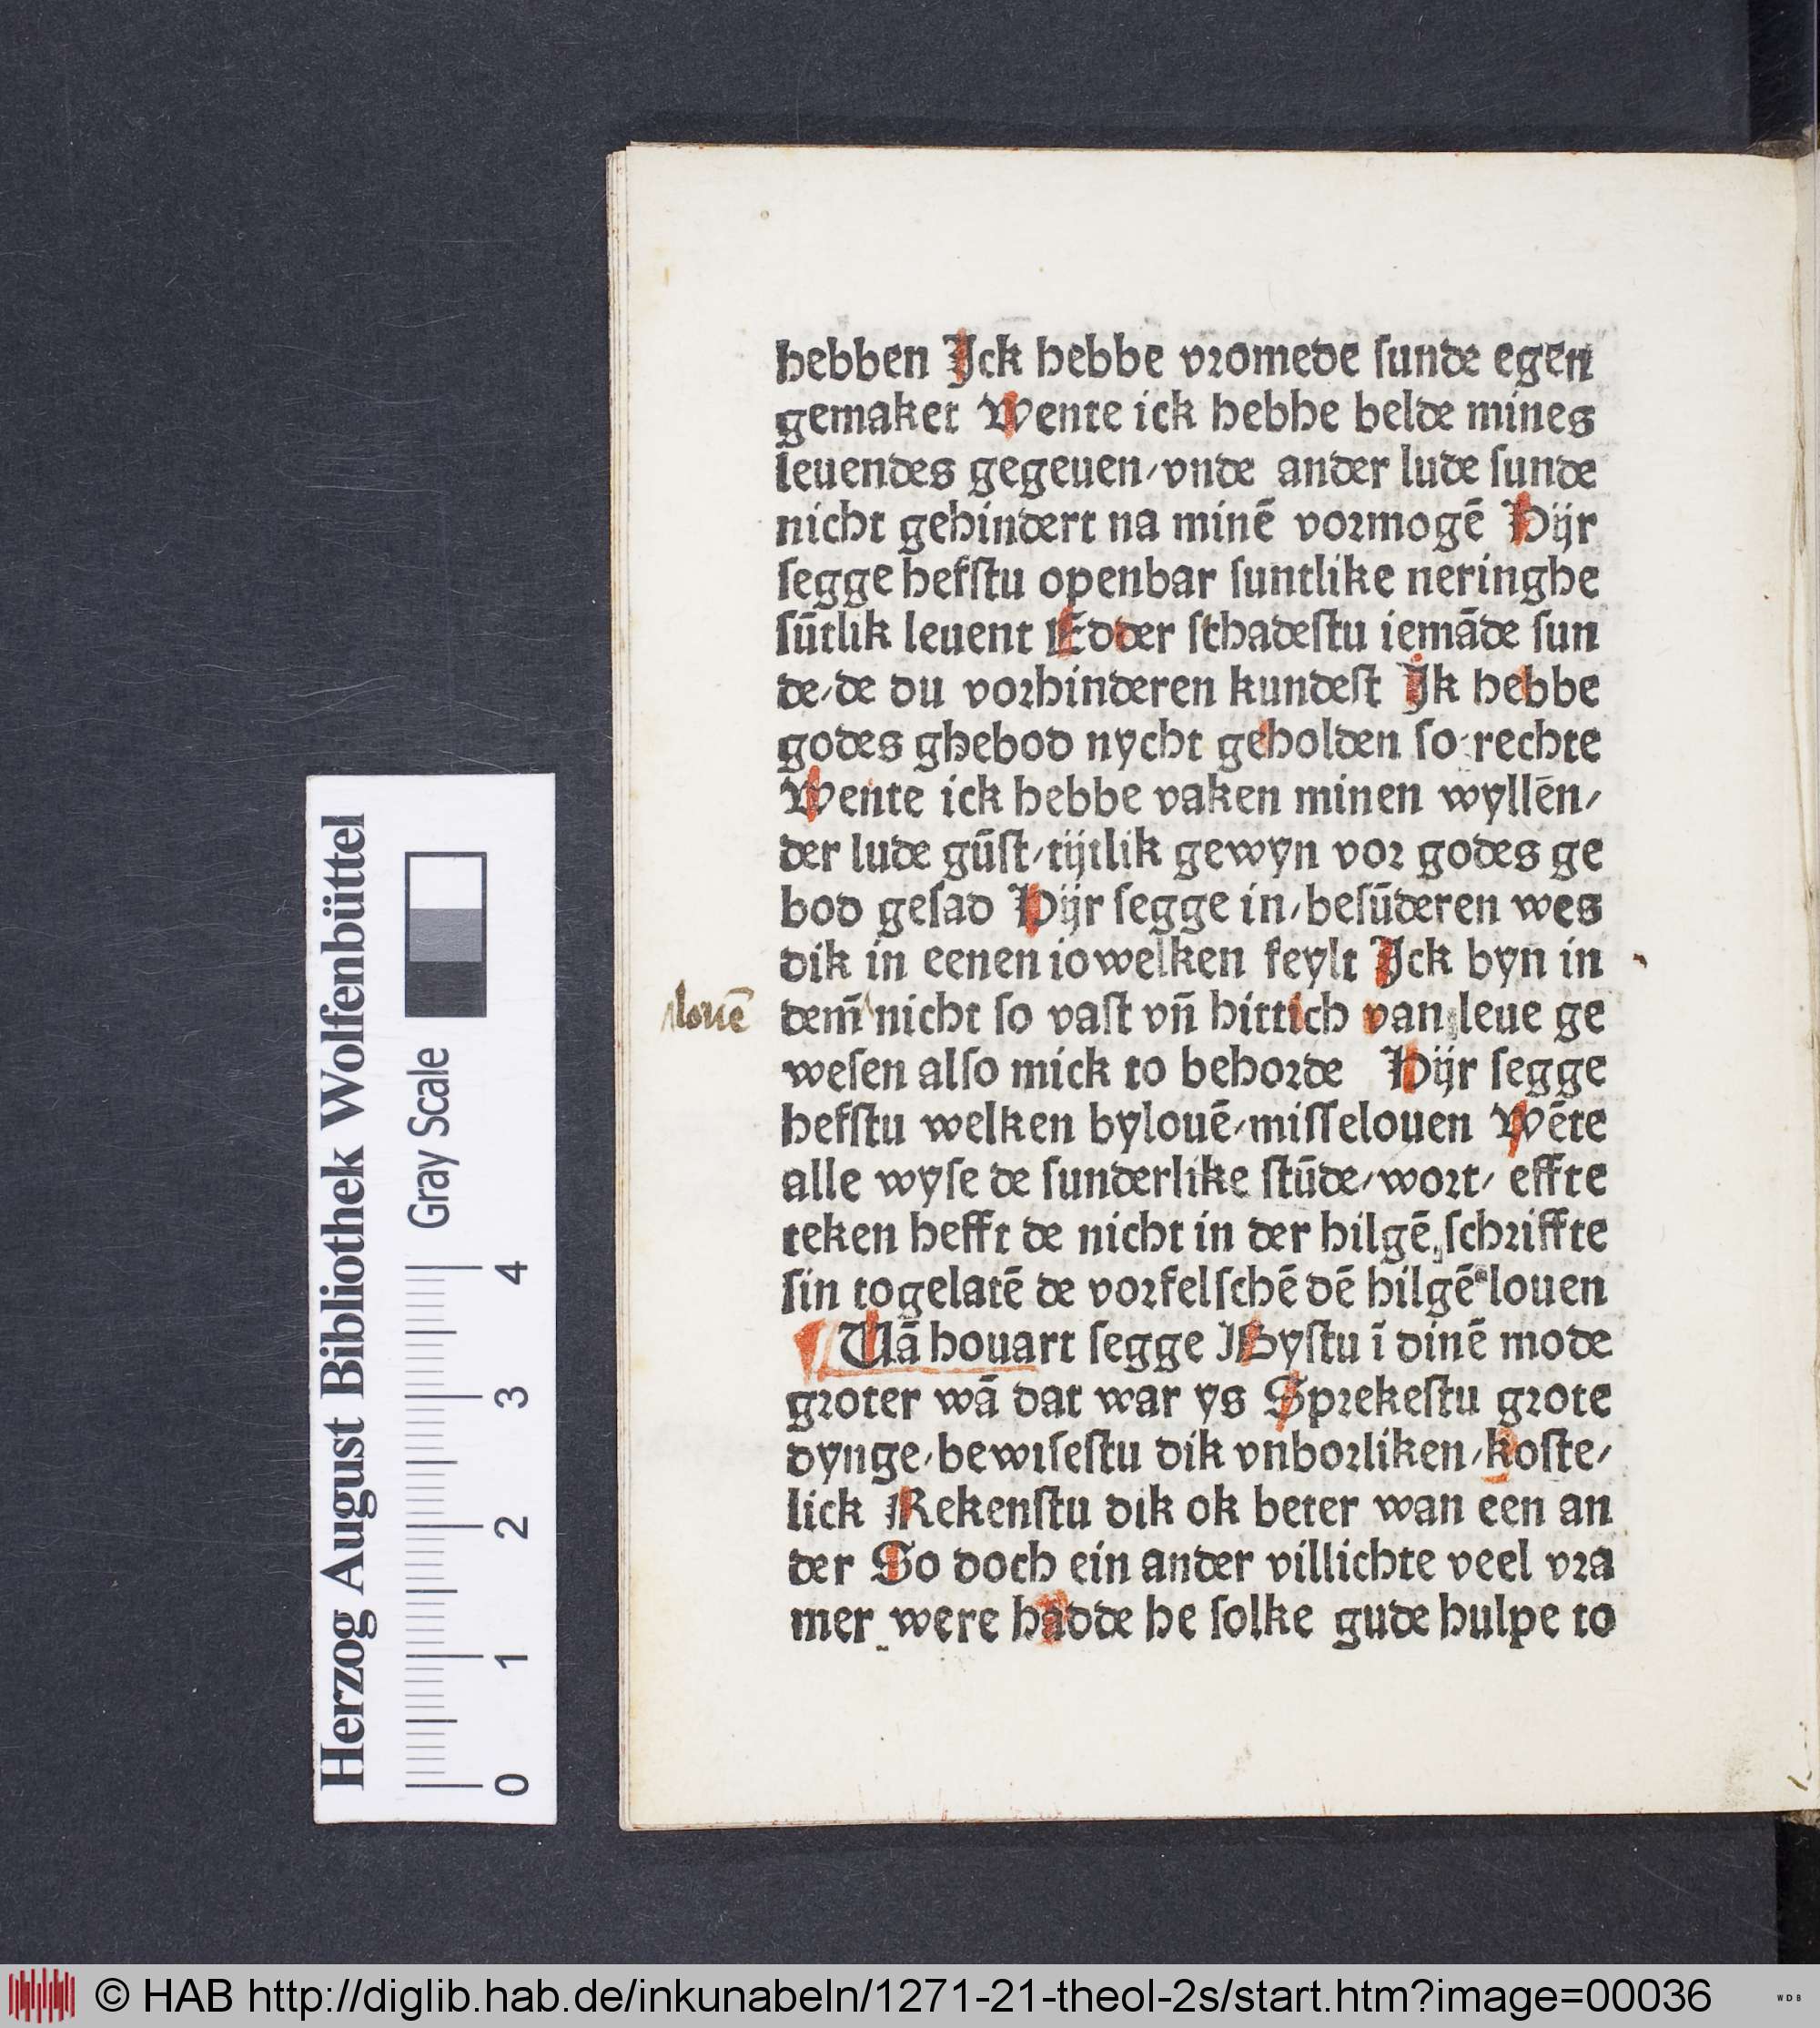 hebben Jck hebbe vromede ſunde egen
gemaket Wente ick hebbe belde mines
leuendes gegeuen/vnde ander lude ſunde
nicht gehindert na minē vormogē Hijr
ſegge hefſtu openbar ſuntlike neringhe
ſūtlik leuent Edder ſchadeſtu iemāde ſun
de/de du vorhinderen kundeſt Jk hebbe
godes ghebod nycht geholden ſo rechte
Wente ick hebbe vaken minen wyllēn/
der lude gūſt/tijtlik gewyn vor godes ge
bod geſad Hijr ſegge in/beſūderen wes
dik in eenen iowelken feylt Jck byn in
louē
dem̄ nicht ſo vaſt vn̄ hittich van leue ge
weſen alſo mick to behorde Hijr ſegge
hefſtu welken bylouē/miſſelouen Wēte
alle wyſe de ſunderlike ſtūde/wort/ effte
teken hefft de nicht in der hilgē ſchriffte
ſin togelatē de vorfelſchē dē hilgē louen
¶ Uā houart ſegge Byſtu ī dinē mode
groter wā dat war ys Sprekeſtu grote
dynge/bewiſeſtu dik vnborliken/koſte/
lick Rekenſtu dik ok beter wan een an
der So doch ein ander villichte veel vra
mer were hadde he ſolke gude hulpe to
Herzog August Bibliothek Wolfenbüttel
Gray Scale
0 1 2 3 4
© HAB http://diglib.hab.de/inkunabeln/1271-21-theol-2s/start.htm?image=00036
WDB